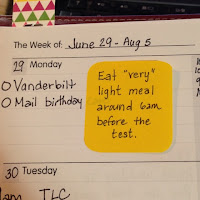 The Week of: June 29 - Aug 5
29 Monday
O Vanderbilt
O Mail birthday
Eat "very"
light meal
around 6am
before the
test.
30 Tuesday
TLC